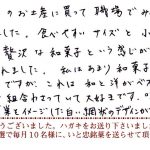 のお土産に買って職場でみ
した。食べやすいサイズと小
贅沢な和菓子という感じが
れました。私はあまり和菓子
ですが、これは和と洋がベス
組合わさっていて大好きです。
葉をイメージした白
うございました。ハガキをお送り下さいまし
選で毎月１０名様に、いと忠銘菓を送らせて頂